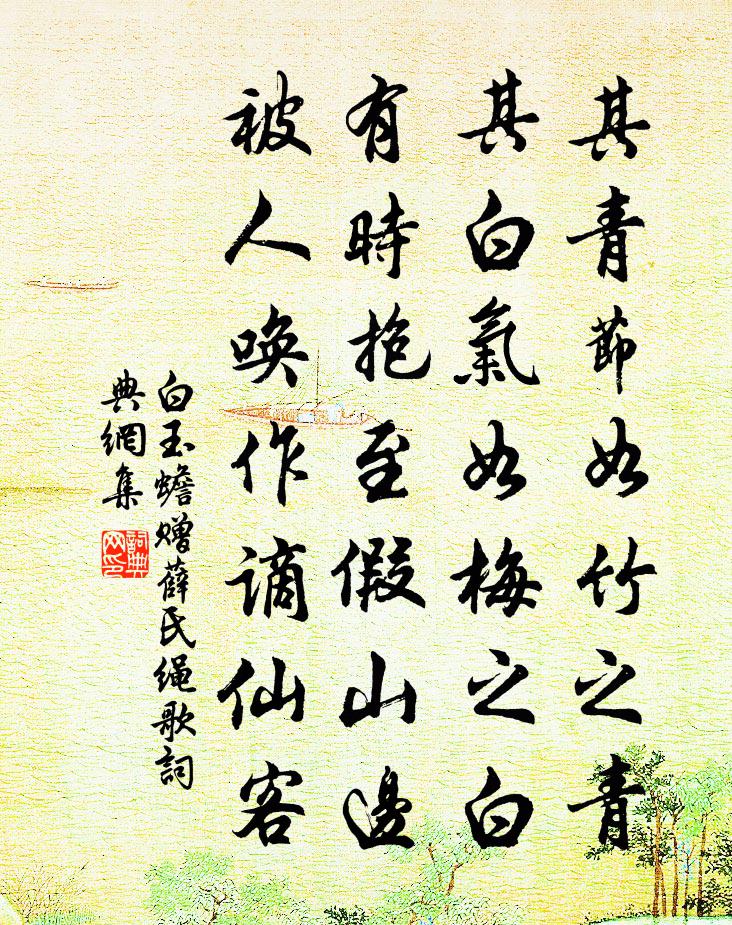 其青節如竹之青
其白氣如梅之白
有時抱至假山邊
被人喚作謫仙客
白玉蟾贈薛氏繩歌詞
典網集
詞典
网印